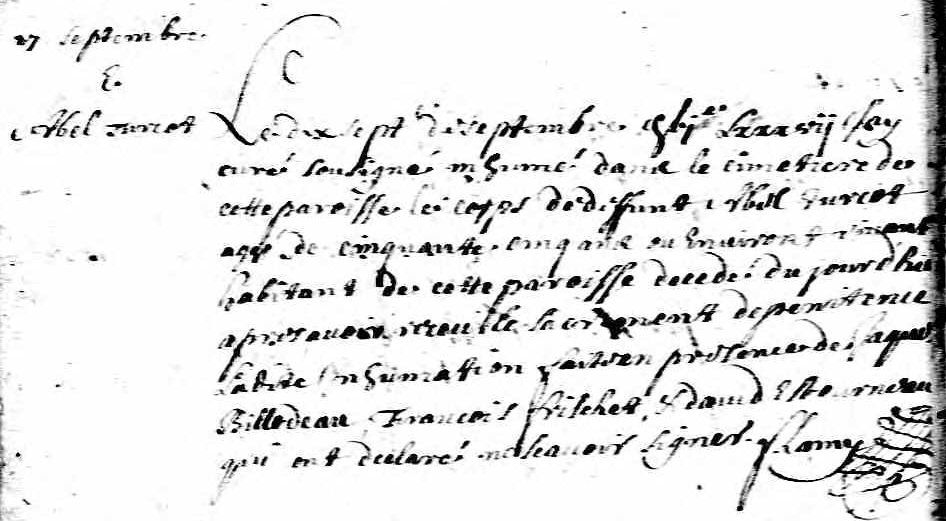 17 septembre
E.
Abel turcot
Le dix sept de septembre lxxxvij J'ay
curé sousigné inhumé dans le cimetiere de
cette paroisse le corps de deffunt Abel turcot
agé de cinquante cinq ans ou environt vivant
habitant de cette paroisse decedé du jour d'hie
apres avoir receu le sacrement de penitence
Ladite Inhumation faitte en presence de Jaques
Billodeau, Francois & david Estourneau
qui ont declaré ne scavoir signer. Lamy